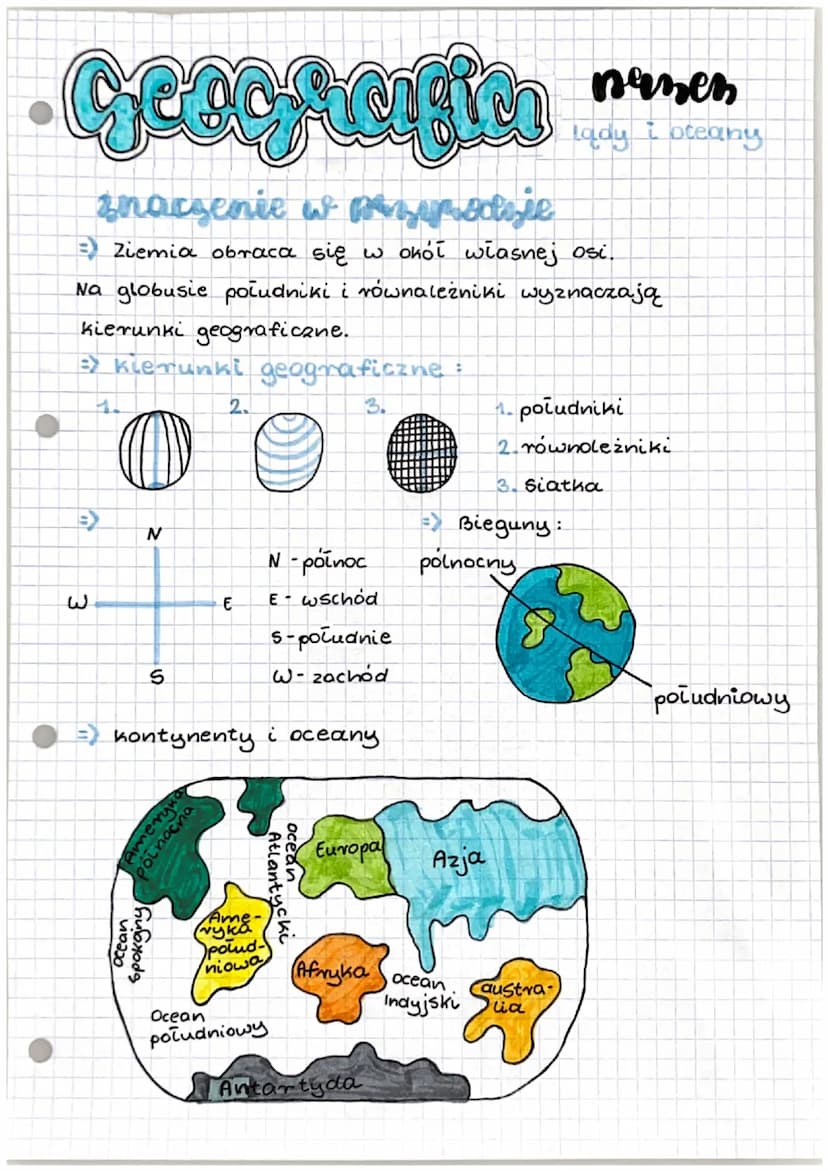 Geografia
lądy i oceany
znaczenie w przyrodzie
=> Ziemia obraca się w okół własnej osi.
Na globusie południki i równależniki wyznaczają
kierunki geograficzne.
=> kierunki geograficzne :
1. 2. 3.
1. południki
2. równoleżniki
3. siatka
=>
N
W
E
S
N - północ
E - wschód
S - południe
W - zachód
=> Bieguny :
północny
południowy
=> kontynenty i oceany
Ameryka
północna
ocean
Atlantycki
Europa
Azja
ocean
spokojny
Ame-
ryka
połud-
niowa
Afryka
ocean
Indyjski
austra-
lia
Ocean
południowy
Antartyda